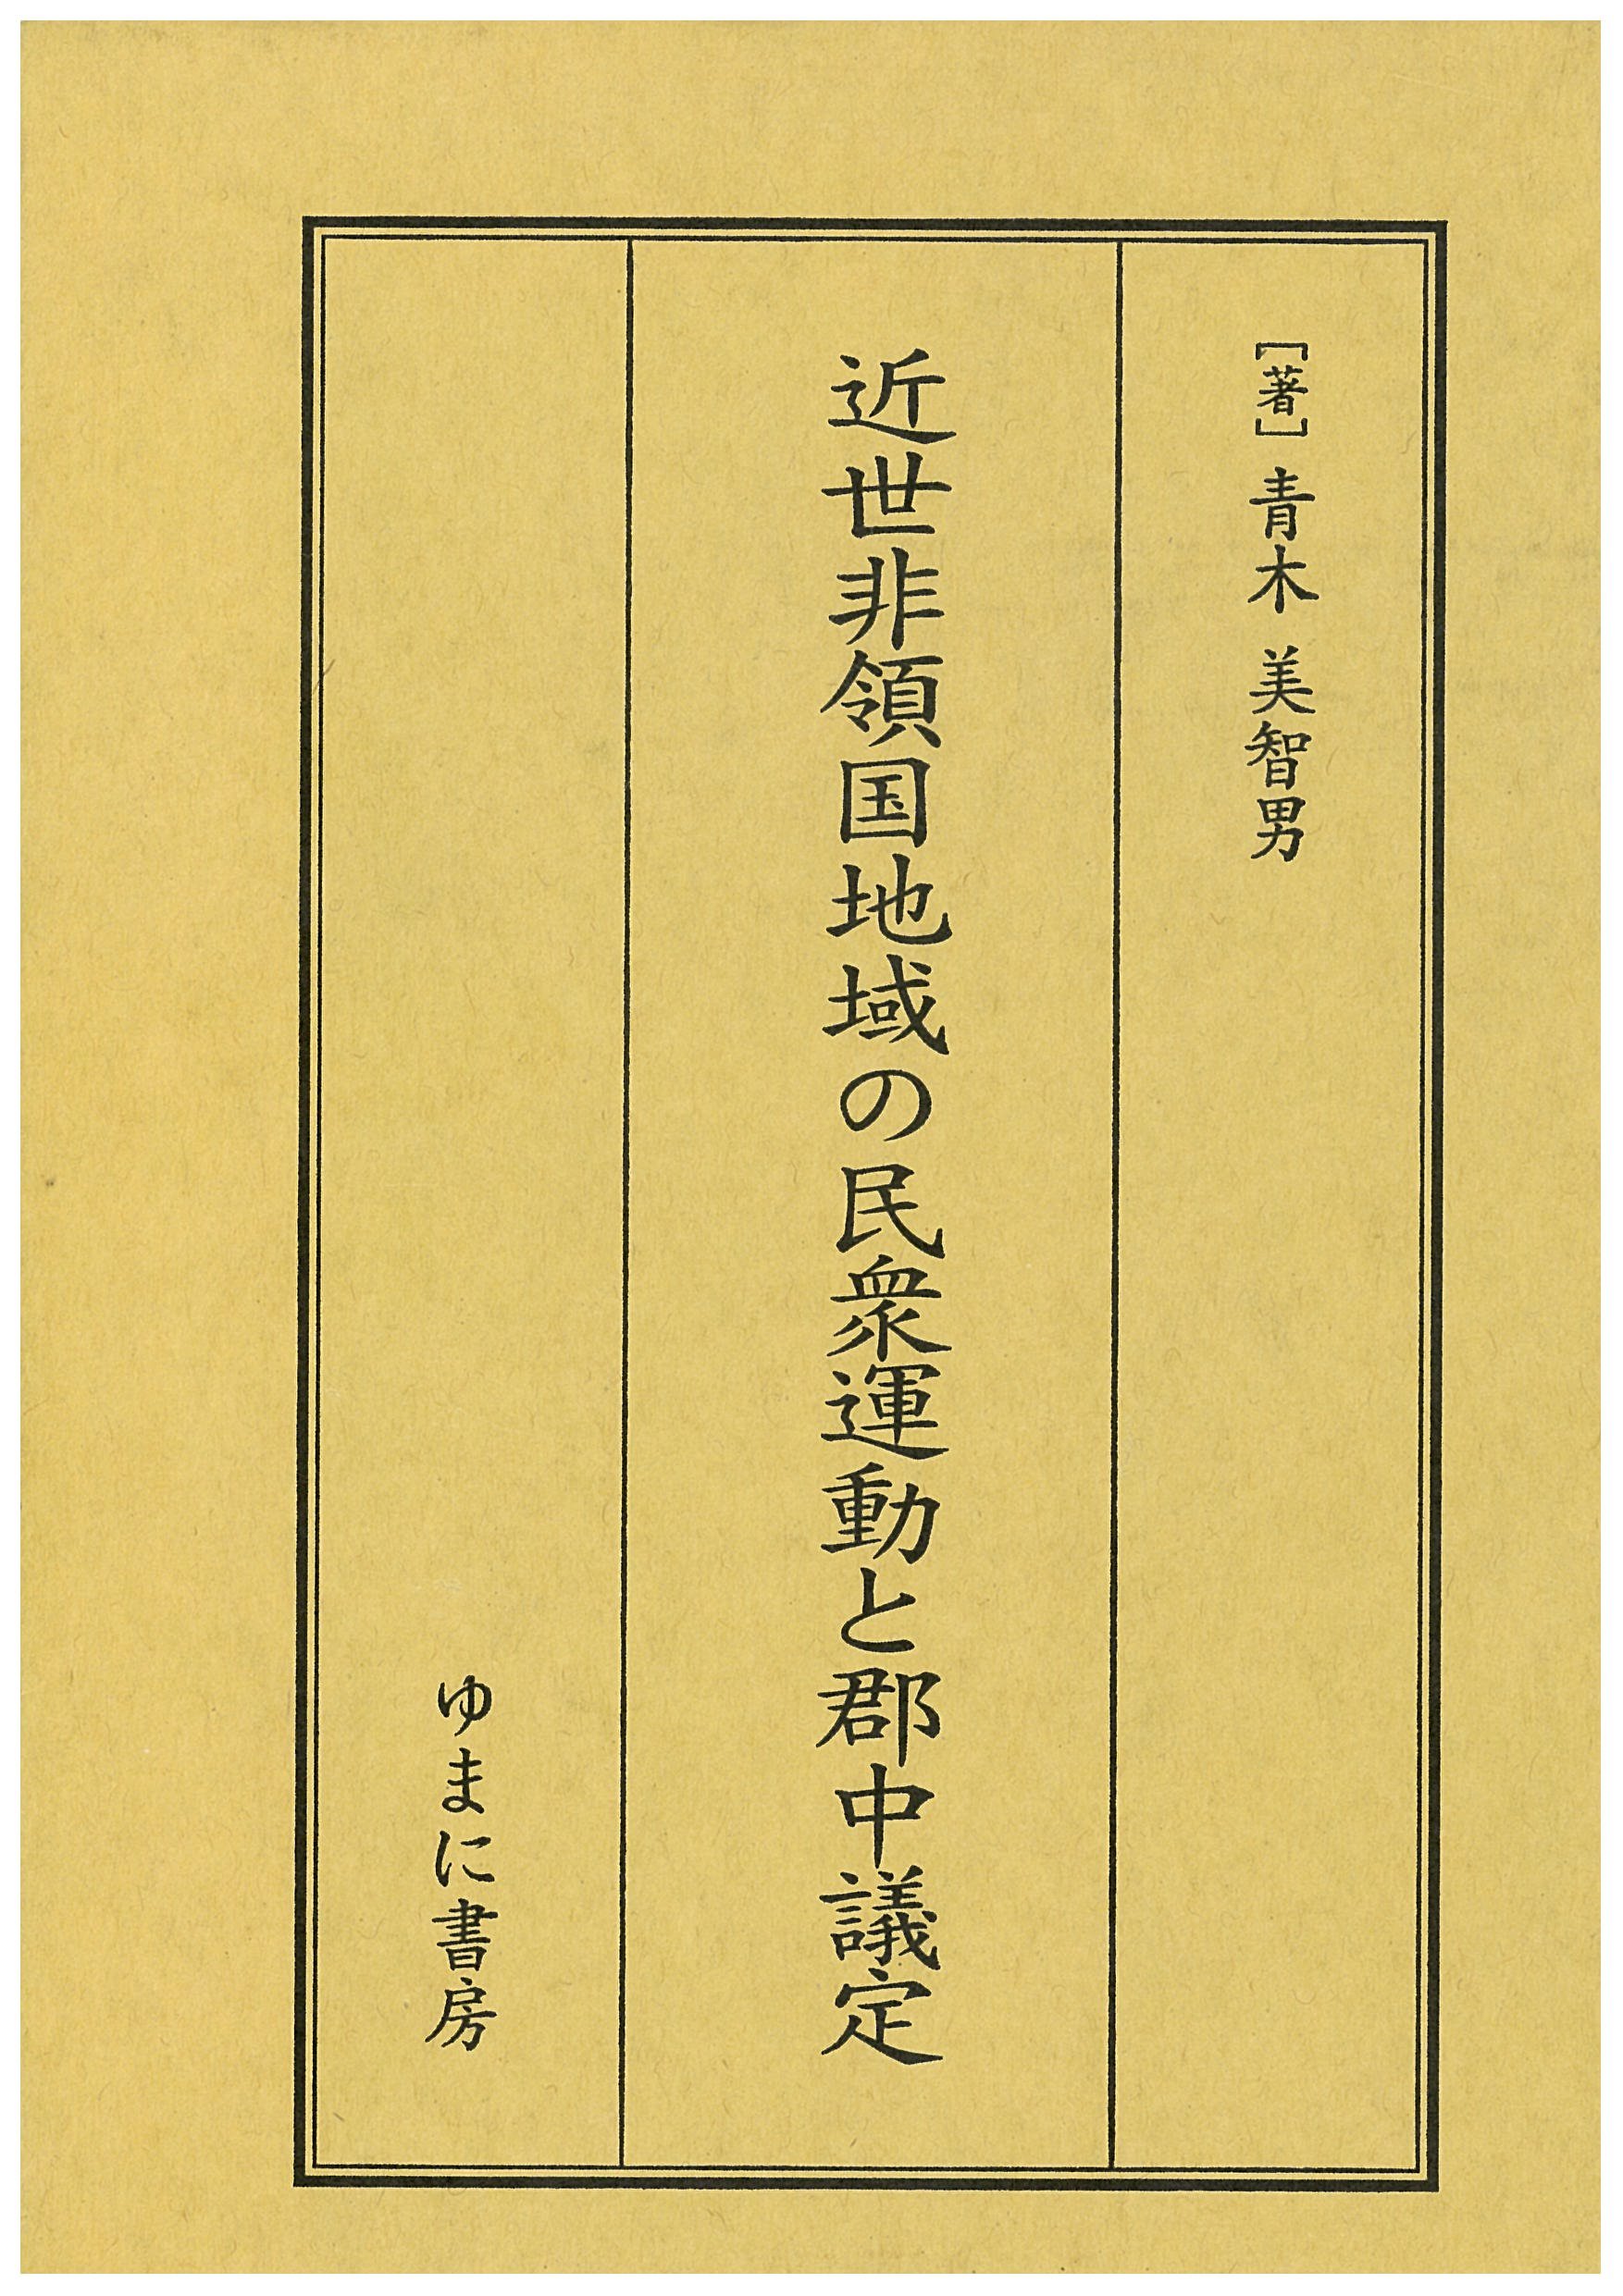 ［著］青木 美智男
近世非領国地域の民衆運動と郡中議定
ゆまに書房